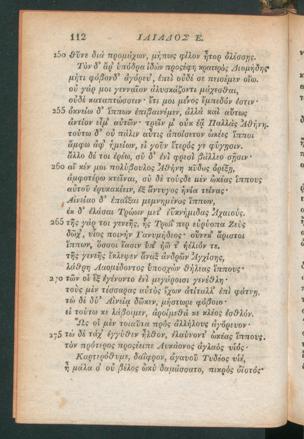 112 ΙΛΙΑΔΟΣ Ε.
250 θῦνε διὰ προμάχων, μήπως φίλον ἦτορ ὀλέσσῃς.
Τὸν δ' ἄρ' ὑπόδρα ἰδὼν προσέφη κρατερὸς Διομήδης·
μήτι φόβονδ' ἀγόρευ', ἐπεὶ οὐδέ σε πεισέμεν οἴω.
οὐ γάρ μοι γενναῖον ἀλυσκάζοντι μάχεσθαι,
οὐδὲ καταπτώσσειν· ἔτι μοι μένος ἔμπεδόν ἐστιν·
255 ὀκνείω δ' ἵππων ἐπιβαινέμεν, ἀλλὰ καὶ αὔτως
ἀντίον εἶμ' αὐτῶν· τρεῖν μ' οὐκ ἐᾷ Παλλὰς Ἀθήνη.
τούτω δ' οὐ πάλιν αὖτις ἀποίσετον ὠκέες ἵπποι
ἄμφω ἀφ' ἡμείων, εἴ γ' οὖν ἕτερός γε φύγῃσιν.
ἄλλο δέ τοι ἐρέω, σὺ δ' ἐνὶ φρεσὶ βάλλεο σῇσιν·
260 αἴ κέν μοι πολύβουλος Ἀθήνη κῦδος ὀρέξῃ,
ἀμφοτέρω κτεῖναι, σὺ δὲ τούσδε μὲν ὠκέας ἵππους
αὐτοῦ ἐρυκακέειν, ἐξ ἄντυγος ἡνία τείνας·
Αἰνείαο δ' ἐπαΐξαι μεμνημένος ἵππων,
ἐκ δ' ἐλάσαι Τρώων μετ' ἐϋκνήμιδας Ἀχαιούς.
265 τῆς γάρ τοι γενεῆς, ἧς Τρωΐ περ εὐρύοπα Ζεὺς
δῶχ', υἷος ποινὴν Γανυμήδεος· οὕνεκ' ἄριστοι
ἵππων, ὅσσοι ἔασιν ὑπ' ἠῶ τ' ἠέλιόν τε.
τῆς γενεῆς ἔκλεψεν ἄναξ ἀνδρῶν Ἀγχίσης,
λάθρῃ Λαομέδοντος ὑποσχὼν θήλεας ἵππους·
270 τῶν οἱ ἓξ ἐγένοντο ἐνὶ μεγάροισι γενέθλη·
τοὺς μὲν τέσσαρας αὐτὸς ἔχων ἀτίταλλ' ἐπὶ φάτνῃ,
τὼ δὲ δύ' Αἰνείᾳ δῶκεν, μήστωρε φόβοιο·
εἰ τούτω κε λάβοιμεν, ἀροίμεθά κε κλέος ἐσθλόν.
Ὣς οἱ μὲν τοιαῦτα πρὸς ἀλλήλους ἀγόρευον·
275 τὼ δὲ τάχ' ἐγγύθεν ἦλθον, ἐλαύνοντ' ὠκέας ἵππους.
τὸν πρότερος προσέειπε Λυκάονος ἀγλαὸς υἱός·
Καρτερόθυμε, δαΐφρον, ἀγαυοῦ Τυδέος υἱέ,
ἦ μάλα σ' οὐ βέλος ὠκὺ δαμάσσατο, πικρὸς ὀϊστός·